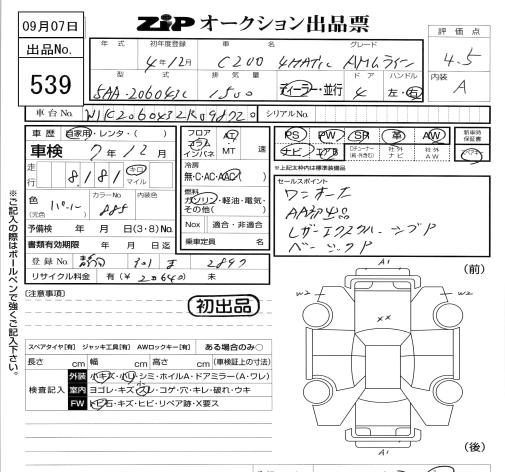 09月07日
出品No.
539
ZiP オークション出品票
評価点
4.5
内装
A
年式 初年度登録 車名 グレード
4年12月 C200 4MATIC AMGライン
型式 排気量 ドア ハンドル
5AA-206043C 1500 ディーラー・並行 4 左・右
車台No. W1K2060432R098720 シリアルNo.
車歴 自家用・レンタ・( )
車検 7年12月
走行 8,181 キロ マイル
色 (元色) カラーNo. 885 内装色
予備検 年 月 日(3・8)No.
書類有効期限 年 月 日迄
登録No. 301 2897
リサイクル料金 有(¥20640) 未
フロア コラム インパネ AT MT 速
冷房
無・C・AC・AAC
燃料
ガソリン・軽油・電気・その他( )
Nox 適合・非適合
乗車定員 名
PS PW SR 革 AW
ナビ エアB Dチューナー(純・外含む) 社外ナビ 社外AW
新車時保証書
*上記太枠内は標準装備品
セールスポイント
ワンオーナー
AA初出品
レザーエクスクルーシブP
ベーシックP
初出品
[注意事項]
スペアタイヤ[有] ジャッキ工具[有] AWロックキー[有] ある場合のみ○
長さ cm 幅 cm 高さ cm (車検証上の寸法)
検査記入
外装 小キズ・小凹・シミ・ホイルA・ドアミラー(A・ワレ)
室内 ヨゴレ・キズ・スレ・コゲ・穴・キレ・破れ・ウキ
FW トビ石・キズ・ヒビ・リペア跡・X要ス
※ご記入の際はボールペンで強くご記入下さい。
(前)
A1
W2
W2
XX
A1
(後)